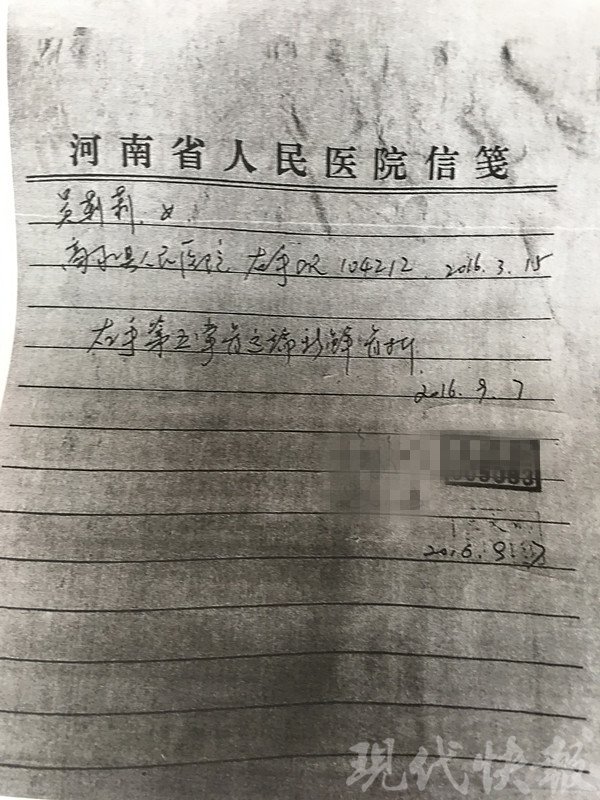 河南省人民医院信笺
吴莉莉,女
商水县人民医院 左手DR 104212. 2016.3.15
左手第五掌骨远端新鲜骨折.
2016.9.7
2016.9.7
现代快報